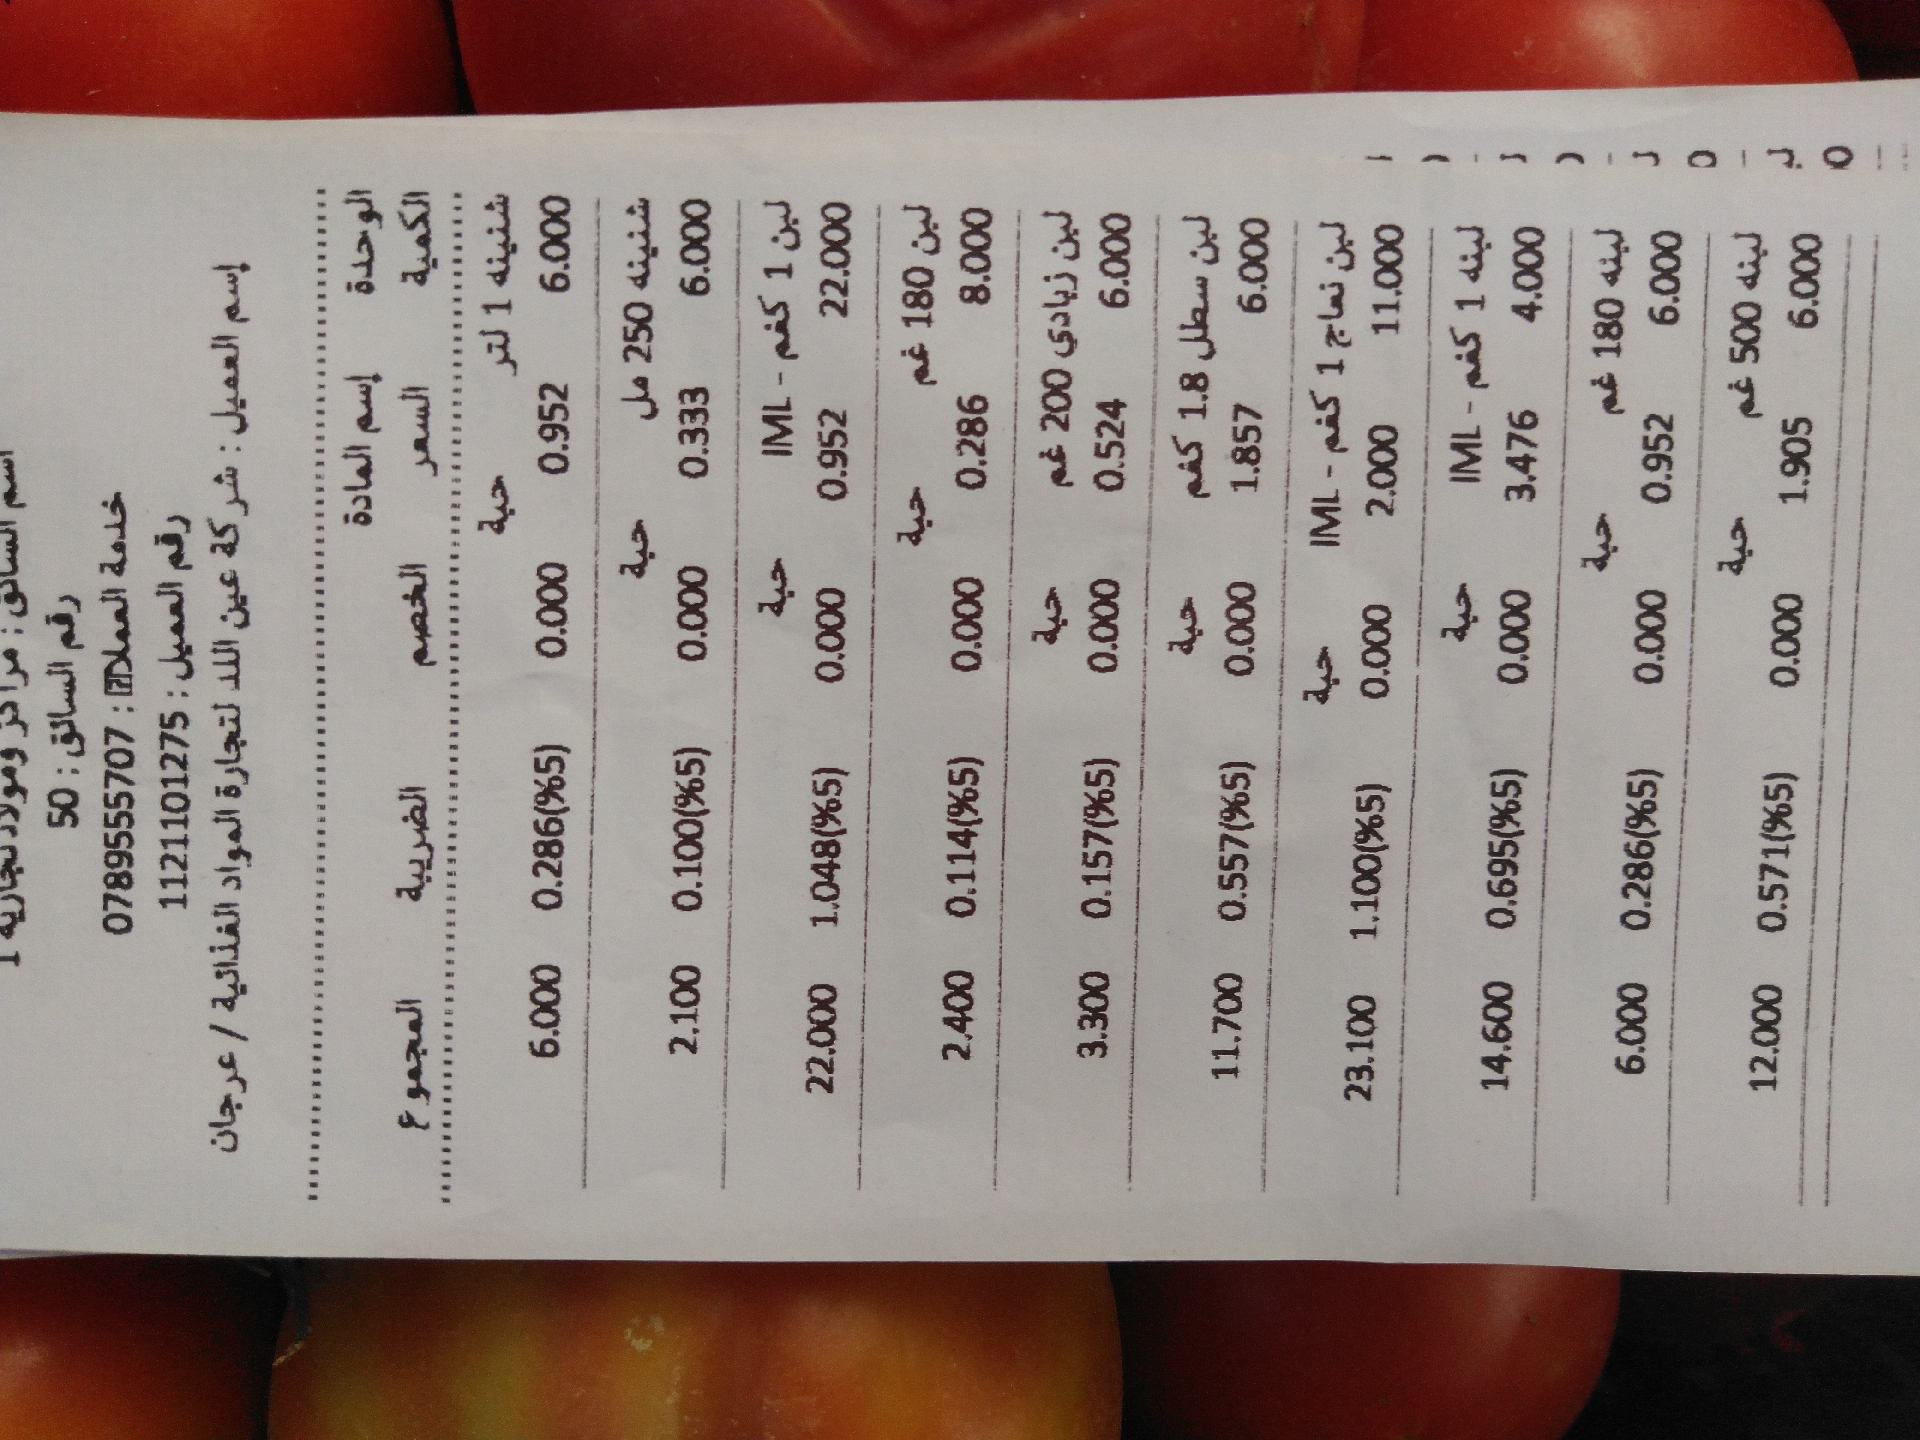 اسم السائق : مراكز ومولات تجاريه 1
رقم السائق : 50
خدمة العملاء : 0789555707
رقم العميل : 1121101275
إسم العميل : شركة عين اللد لتجارة المواد الغذائية / عرجان
الوحدة إسم المادة
الكمية السعر الخصم الضريبة المجموع
شنينه 1 لتر حبة
6.000 0.952 0.000 0.286(%5) 6.000
شنينه 250 مل حبة
6.000 0.333 0.000 0.100(%5) 2.100
لبن 1 كغم - IML حبة
22.000 0.952 0.000 1.048(%5) 22.000
لبن 180 غم حبة
8.000 0.286 0.000 0.114(%5) 2.400
لبن زبادي 200 غم حبة
6.000 0.524 0.000 0.157(%5) 3.300
لبن سطل 1.8 كغم حبة
6.000 1.857 0.000 0.557(%5) 11.700
لبن نعاج 1 كغم - IML حبة
11.000 2.000 0.000 1.100(%5) 23.100
لبنه 1 كغم - IML حبة
4.000 3.476 0.000 0.695(%5) 14.600
لبنه 180 غم حبة
6.000 0.952 0.000 0.286(%5) 6.000
لبنه 500 غم حبة
6.000 1.905 0.000 0.571(%5) 12.000